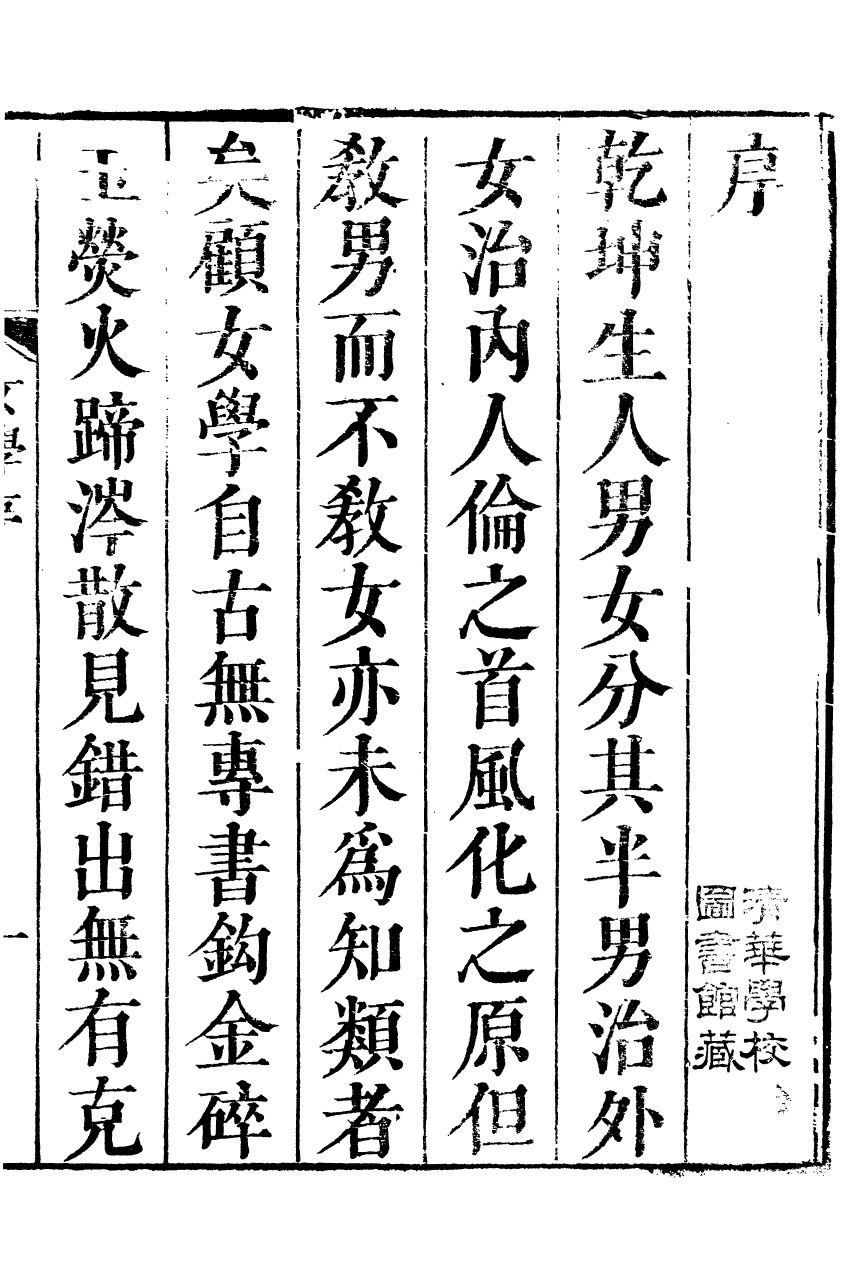 序
清華學校
圖書館藏
乾坤生人男女分其半男治外
女治內人倫之首風化之原但
教男而不教女亦未爲知類者
矣顧女學自古無專書鈎金碎
玉熒火蹄涔散見錯出無有克
女學序
一